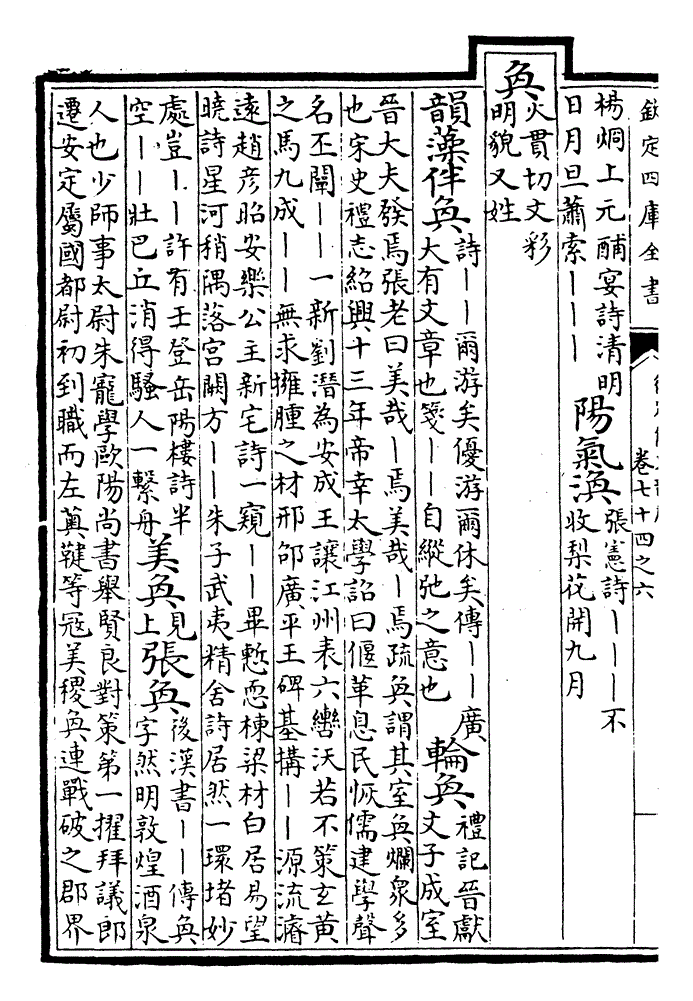 欽定四庫全書
卷七十四之六
楊烱上元酺宴詩清明
日月旦蕭索｜｜｜
陽氣渙
張憲詩｜｜｜不
收梨花開九月
奐
火貫切文彩
明貌又姓
韻藻伴奐
詩｜｜爾游矣優游爾休矣傳｜｜廣
大有文章也箋｜｜自縱弛之意也
輪奐
禮記晉獻
文子成室
晉大夫發焉張老曰美哉｜焉美哉｜焉疏奐謂其室奐爛衆多
也宋史禮志紹興十三年帝幸太學詔曰偃革息民恢儒建學聲
名丕闡｜｜一新劉潛為安成王讓江州表六轡沃若不策玄黃
之馬九成｜｜無求擁腫之材邢邵廣平王碑基搆｜｜源流濬
遠趙彦昭安樂公主新宅詩一窺｜｜畢慙恧棟梁材白居易望
曉詩星河稍隅落宮闕方｜｜朱子武夷精舍詩居然一環堵妙
處豈｜｜許有壬登岳陽樓詩半
空｜｜壯巴丘消得騷人一繋舟
美奐
見
上
張奐
後漢書｜｜傳奐
字然明敦煌酒泉
人也少師事太尉朱寵學歐陽尚書舉賢良對策第一擢拜議郎
遷安定屬國都尉初到職而左薁鞬等冦美稷奐連戰破之郡界